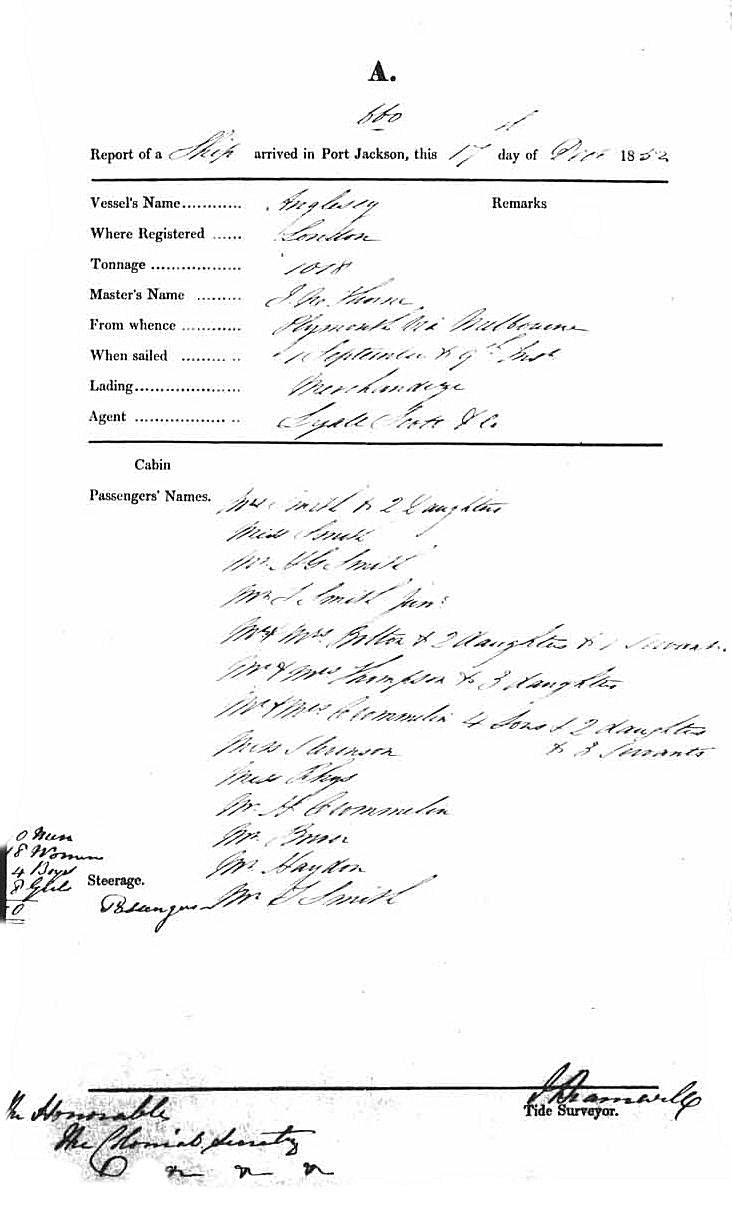 A.
660
Report of a Ship arrived in Port Jackson, this 17 day of Decr 1852
Vessel's Name............ Anglesey Remarks
Where Registered ...... London
Tonnage .................. 1018
Master's Name .........
From whence ............ Plymouth via Melbourne
When sailed ......... .. 1 September & 9th Inst
Lading..................... Merchandize
Agent .................. .. Lyall Scott & Co.
Cabin
Passengers' Names. Mrs Smith & 2 Daughters
Miss Smith
Mr Smith
Mr Smith Junr
Mr & Mrs Bolton & 2 daughters & 1 Servant
Mr & Mrs Thompson & 3 daughters
Mr & Mrs Crommelin 4 Sons & 2 daughters
& 3 Servants
Miss Stevenson
Miss Rhys
Mr H Crommelin
Mr
Mr Haydon
Mr Smith
0 Men
18 Women
4 Boys
8 Girls
0
Steerage.
Passengers
Tide Surveyor.
The Honorable
The Colonial Secretary